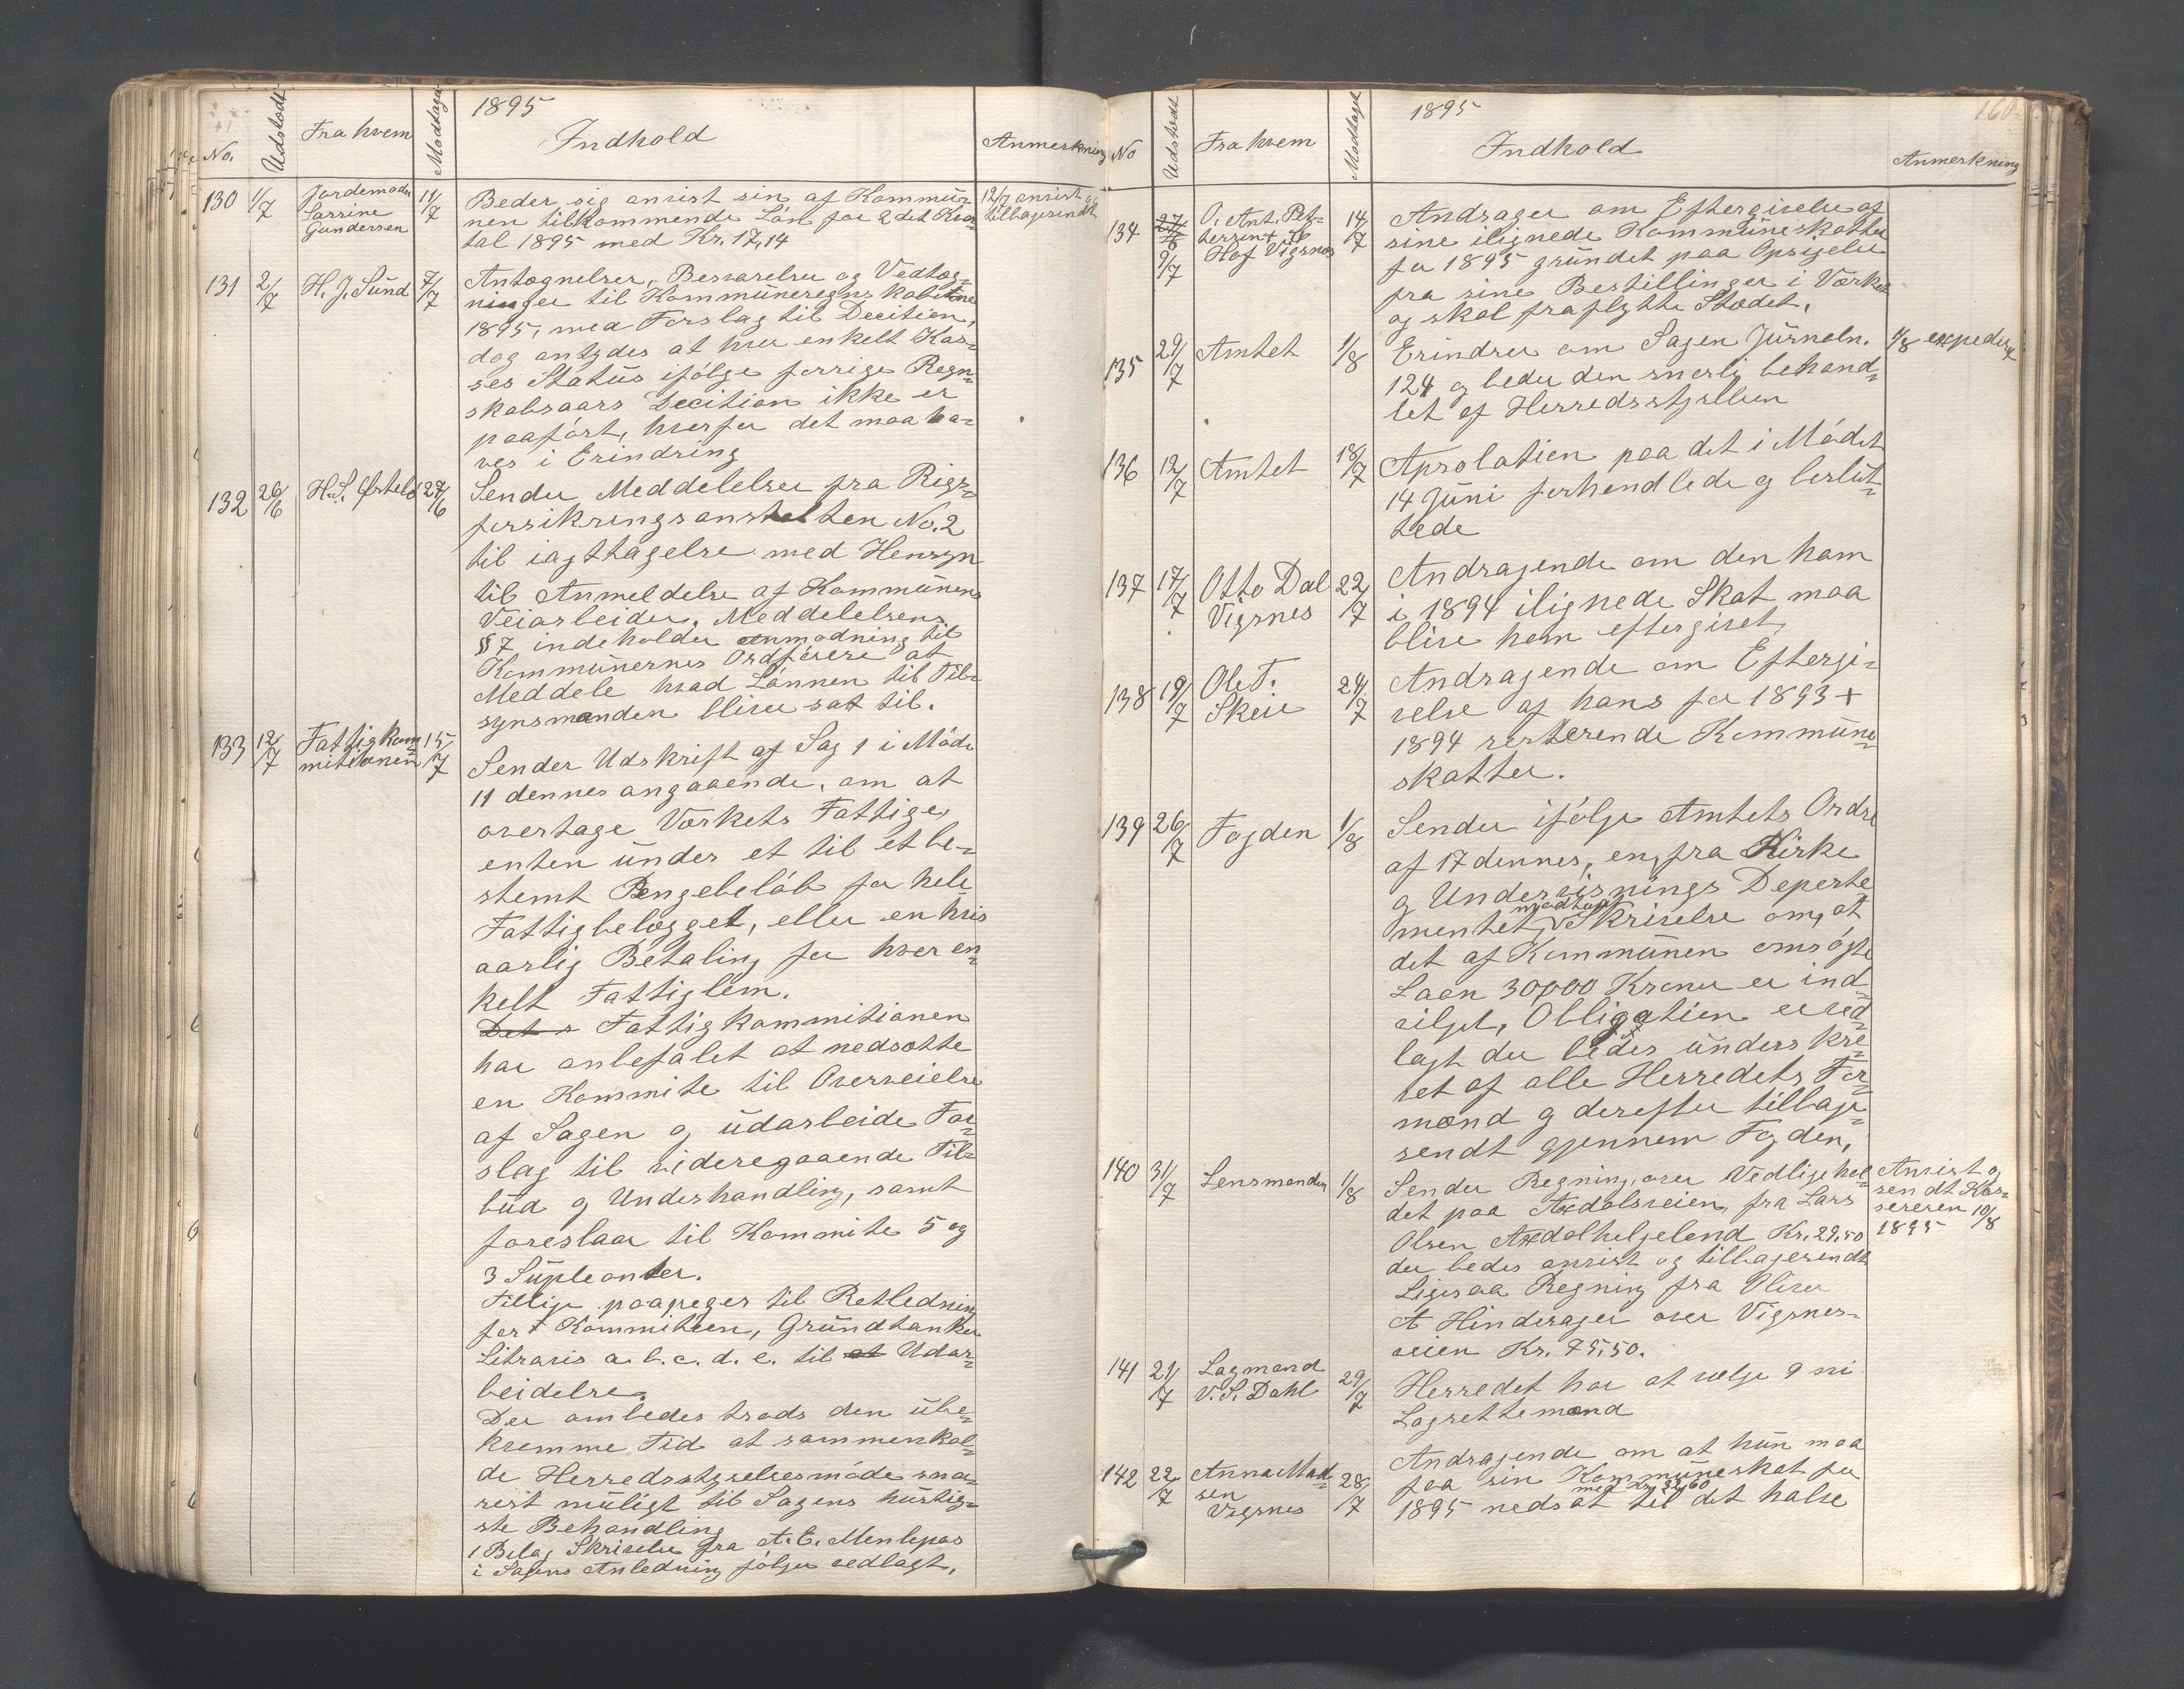 1895
No. Udstedt Fra hvem Modtaget Indhold Anmerkning
130 1/7 Jordemoder 11/7 Beder sig anvist sin af Kommü- 12/7 anvist og
Sarrine nen tilkommende Lön for 2det Kvar- tilbagesendt
Gundersen tal 1895 med Kr. 17,14
131 2/7 H. J. Sünd 7/7 Antegnelser, Besvarelser og Vedteg-
ninger til Kommüneregnskaberne
1895, med Forslag til Decition,
dog antydes at hver enkelt Kas-
ses Statüs ifölge forrige Regn-
skabsaars Decition ikke er
paafört, hvorfor det maa ha-
ves i Erindring
132 26/6 H. S. 27/6 Sender Meddelelser fra Rigs-
forsikringsanstalten No. 2
til iagttagelse med Hensyn
til Anmeldelse af Kommünens
Veiarbeider. Meddelelsens
§ 7 indeholder anmodning til
Kommünernes Ordförere at
Meddele hvad Lönnen til Til-
synsmanden bliver sat til.
133 12/7 Fattigkom- 15/7 Sender Udskrift af Sag 1 i Möde
mitionen 11 dennes angaaende, om at
overtage Værkets Fattige,
enten ünder et til et be-
stemt Pengebelöb for hele
Fattigbelægget, eller en vis
aarlig Betaling for hver en-
kelt Fattiglem.
Det Fattigkommitionen
har anbefalet at nedsætte
en Kommite til Overveielse
af Sagen og üdarbeide For-
slag til videregaaende Til-
büd og Underhandling, samt
foreslaar til Kommite 5 og
3 Süpleanter.
Tillige paapeger til Retledning
for Kommiteen, Gründtanker
Litraris a. b. c. d. e. til at Udar-
beidelse.
Der ombedes trods den übe-
kvemme Tid at sammenkal-
de Herredsstyrelsesmöde sna-
rest müligt til Sagens hürtig-
ste Behandling
1 Bilag Skrivelse fra A. E.
i Sagens Anledning fölger vedlagt.
160
1895
No Udstedt Fra hvem Modtaget Indhold Anmerkning
134 27/6 O. Ant. Pet- 14/7 Andrager om Eftergivelse af
9/7 tersen sine ilignede Kommüneskatter
Vigsnes for 1895 gründet paa Opsigelse
fra sine Bestillinger i Værket
og skal fraflytte Stedet.
135 29/7 Amtet 1/8 Erindrer om Sagen Jürnaln. 4/8 expederet
124 og beder den snarlig behand-
let af Herredsstyrelsen
136 12/7 Amtet 18/7 Aprobatien paa det i Mödet
14 Jüni forhandlede og beslüt-
tede
137 17/7 Otto Dal 22/7 Andragende om den ham
Vigsnes i 1894 ilignede Skat maa
blive ham eftergivet
138 19/7 Ole T. 24/7 Andragende om Eftergi-
Skeie velse af hans for 1893 +
1894 resterende Kommüne-
skatter.
139 26/7 Fogden 1/8 Sender ifölge Amtets Ordre
af 17 dennes, en, fra Kirke
og Undervisnings Departe
modtagen
mentet, Skrivelse om, at
det af Kommünen omsögte
Laan 30000 Kroner er ind-
vilget, Obligatien er ved-
lagt der bedes ünderskre-
vet af alle Herredets For-
mænd og derefter tilbage-
sendt gjennem Fogden,
140 31/7 Lensmanden 1/8 Sender Regning over Vedligehol- Anvist og
det paa veien, fra Lars sendt Kas-
Olsen Kr. 29,50 sereren 10/8
der bedes anvist og tilbagesendt 1895
Ligesaa Regning fra Oliver
A Hinderager over Vigsnes-
veien Kr. 75,50.
141 21/7 Lagmand 29/7 Herredet har at vælge 9 ni
V. S. Dahl Lagrettemænd
142 22/7 Anna Mad- 28/7 Andragende om at hün maa
sen faa sin Kommüneskat for
med Kr. 32,60
Vigsnes 1895 nedsat til det halve